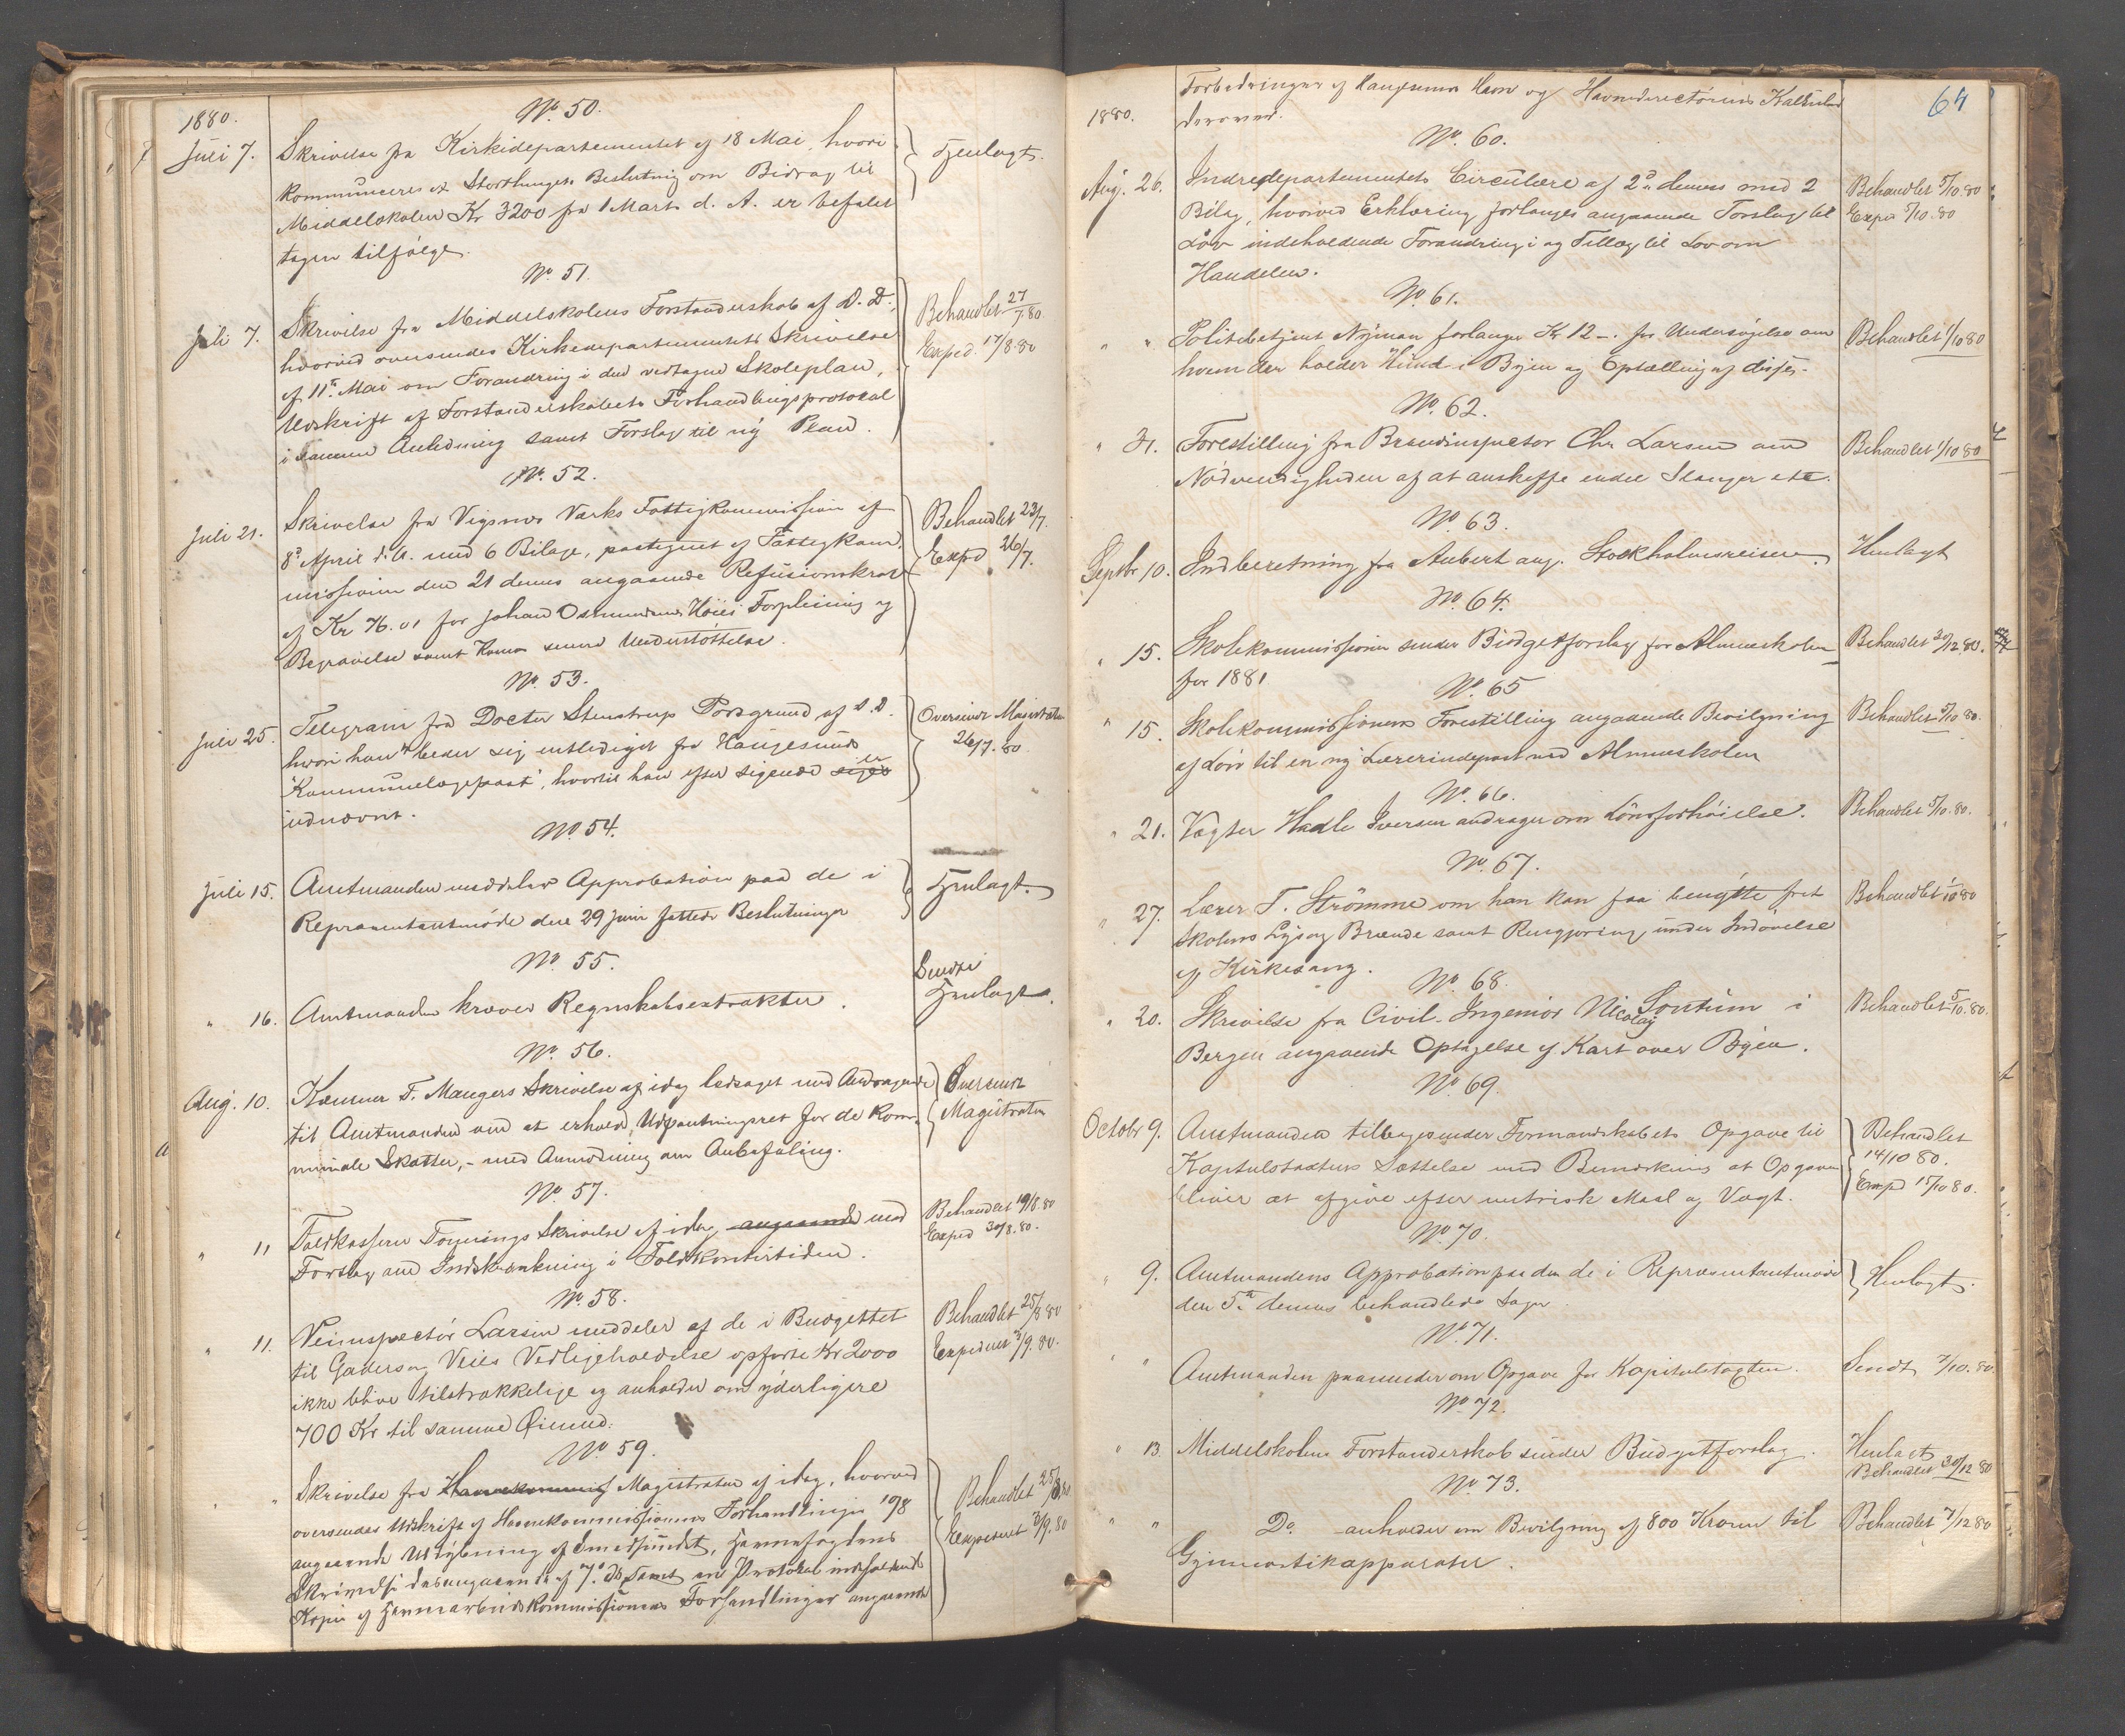 1880.
No. 50.
Juli 7. Skrivelse fra Kirkedepartementet af 18 Mai, hvori Henlagt.
kommuniceres at Storthingets Beslutning om Bidrag til
Middelskolen Kr 3200 fra 1 Marts d. A. er befalet
tagen tilfølge.
No. 51.
Juli 7. Skrivelse fra Middelskolens Forstanderskab af D. D. Behandlet 27/7 80
hvorved oversendes Kirkedepartementets Skrivelse Exped. 17/8 80
af 11te Mai om Forandring i den vedtagne Skoleplan,
Udskrift af Forstanderskabets Forhandlingsprotokol
i samme Anledning samt Forslag til ny Plan.
No. 52.
Juli 21. Skrivelse fra Vigsnes Værks Fattigkommission af Behandlet 23/7.
8de April d. A. med 6 Bilage, paategnet af Fattigkom- Exped 26/7.
missionen den 21 dennes angaaende Refusionskrav
af Kr 76.01 for Johan Osmundsens Forpleining og
Begravelse samt Kones senere Understøttelse.
No. 53.
Juli 25. Telegram fra Doctor Stenstrup Porsgrund af d. D. Oversendt Magistraten
hvori han beder sig entlediget fra Haugesunds 26/7. 80.
"Kommunelægepost", hvortil han efter sigende siges er
udnævnt.
No. 54.
Juli 15. Amtmanden meddeler Approbation paa de i Henlagt.
Repræsentantmøde den 29 Juni fattede Beslutninger
No. 55.
Sendt
" 16. Amtmanden kræver Regnskabsextrakter. Henlagt.
No. 56.
Aug. 10. Kæmner F. Mauger's Skrivelse af idag ledsaget med Andragende Oversendt
til Amtmanden om at erholde Udpantningsret for de Kom- Magistraten
munale Skatter, - med Anmodning om Anbefaling.
No. 57.
" 11 Toldkasserer Skrivelse af idag angaaende med Behandlet 19/8.80
Forslag om Indskrænkning i Toldkontortiden. Exped 30/8.80.
No. 58.
" 11. Veiinspectør Larsen meddeler af de i Budgettet Behandlet 25/8 80
til Gaders og Veies Vedligeholdelse opførte Kr 2000 Expederet 3/9. 80.
ikke blive tilstrækkelige og anholder om yderligere
700 Kr til samme Øiemed.
No. 59.
" " Skrivelse fra Havnekommis Magistraten af idag, hvorved Behandlet 25/8 80
oversendes Udskrift af Havnekommissionens Forhandlinger 10/8 Expederet 3/9. 80
angaaende Uddybning af Smedsundet, Havnefogdens
Skrivelse desangaaende af 7de ds samt en Protokol indeholdende
Kopi af Havnearbeidskommissionens Forhandlinger angaaende
64
1880. Forbedringer af Haugesunds Havn og Havnedirectørens Kalkule
derover.
No. 60.
Aug. 26. Indredepartementets Circulære af 2den dennes med 2 Behandlet 5/10 80
Bilag, hvorved Erklæring forlanges angaaende Forslag til Exped 5/10. 80
Lov indeholdende Forandring i og Tillæg til Lov om
Handelen.
No. 61.
" " Politibetjent Nyman forlanger Kr 12 -. for Undersøgelse om Behandlet 1/10 80
hvem der holder Hund i Byen og Optælling af disse.
No. 62.
" 31. Forestilling fra Brandinspector Chr. Larsen om Behandlet 1/10 80
Nødvendigheden af at anskaffe endel Slanger etc.
No. 63.
Septbr 10. Indberetning fra Aubert ang. Stockholmsreisen. Henlagt
No. 64.
" 15. Skolekommissionen sender Budgetforslag for Almueskolen Behandlet 30/12.80.
for 1881
No. 65
" 15. Skolekommissionens Forestilling angaaende Bevilgning Behandlet 5/10 80.
af Løn til en ny Lærerindepost ved Almueskolen
No. 66.
" 21. Vægter Hadle Iversen andrager om Lønsforhøielse. Behandlet 5/10. 80.
No. 67.
" 27. Lærer T. Strømme om han kan faa benytte frit Behandlet 1/10 80
Skolens Lys og Brænde samt Rengjøring under Indøvelse
af Kirkesang.
No. 68.
" 20. Skrivelse fra Civil-Ingeniør Nicolay Sontum i Behandlet 5/10. 80.
Bergen angaaende Optagelse af Kart over Byen.
No. 69.
Octobr 9. Amtmanden tilbagesender Formandskabets Opgave til Behandlet
Kapitulstaxters Sættelse med Bemærkning at Opgaven 14/10 80.
bliver at afgive efter metrisk Maal og Vægt. Exp 15/10 80.
No. 70.
" 9. Amtmandens Approbation paa den de i Repræsentantmøde Henlagt.
den 5te dennes behandlede Sager.
No. 71.
" " Amtmanden paaminder om Opgave for Kapitulstaxten. Sendt 7/10. 80.
No. 72.
" 13. Middelskolens Forstanderskab sender Budgetforslag. Henlagt
Behandlet 30/12 80
No. 73.
" " Do anholder om Bevilgning af 800 Kroner til Behandlet 7/12 80
Gymnastikapparater.